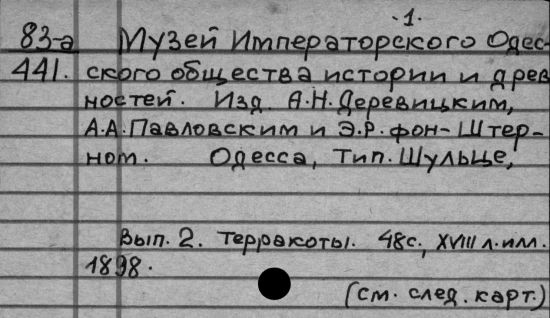 ·1.
83-а Музей Императорского Одес-
441. ского общества истории и древ
ностей. Изд. А.Н. Деревицким,
А.А. Павловским и Э.Р. фон-Штер-
ном. Одесса, Тип. Шульце,
Вып. 2. Терракоты. 48с., XVIII л. илл.
1898.
(см. след. карт.)